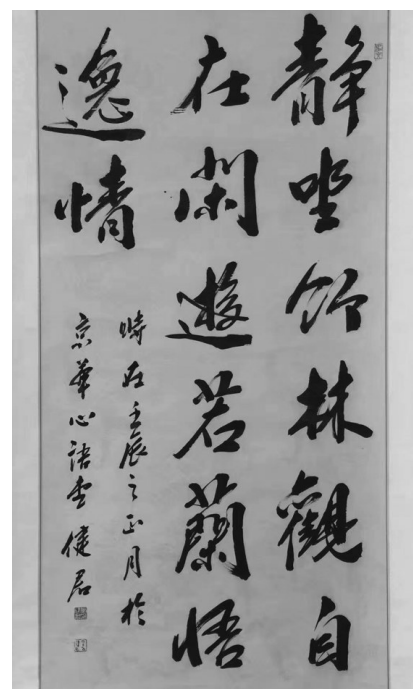 静坐竹林觀自
在閑遊若蘭悟
逸情
時在壬辰之正月於
京華心語堂健君